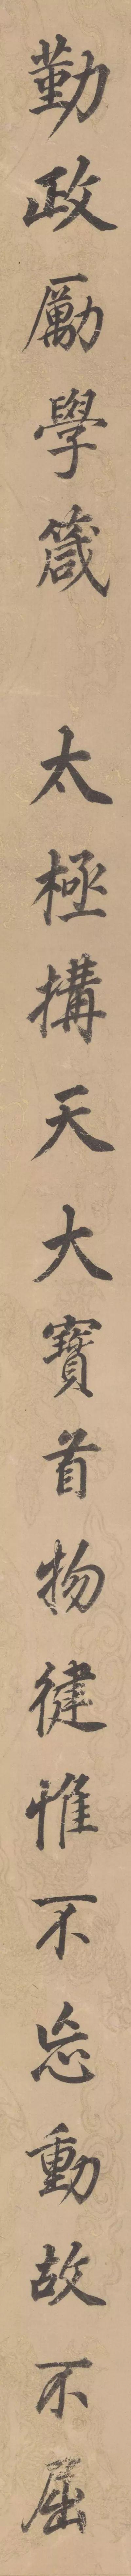 勤政勵學箴 太極搆天大寶首物健惟不忘動故不屈